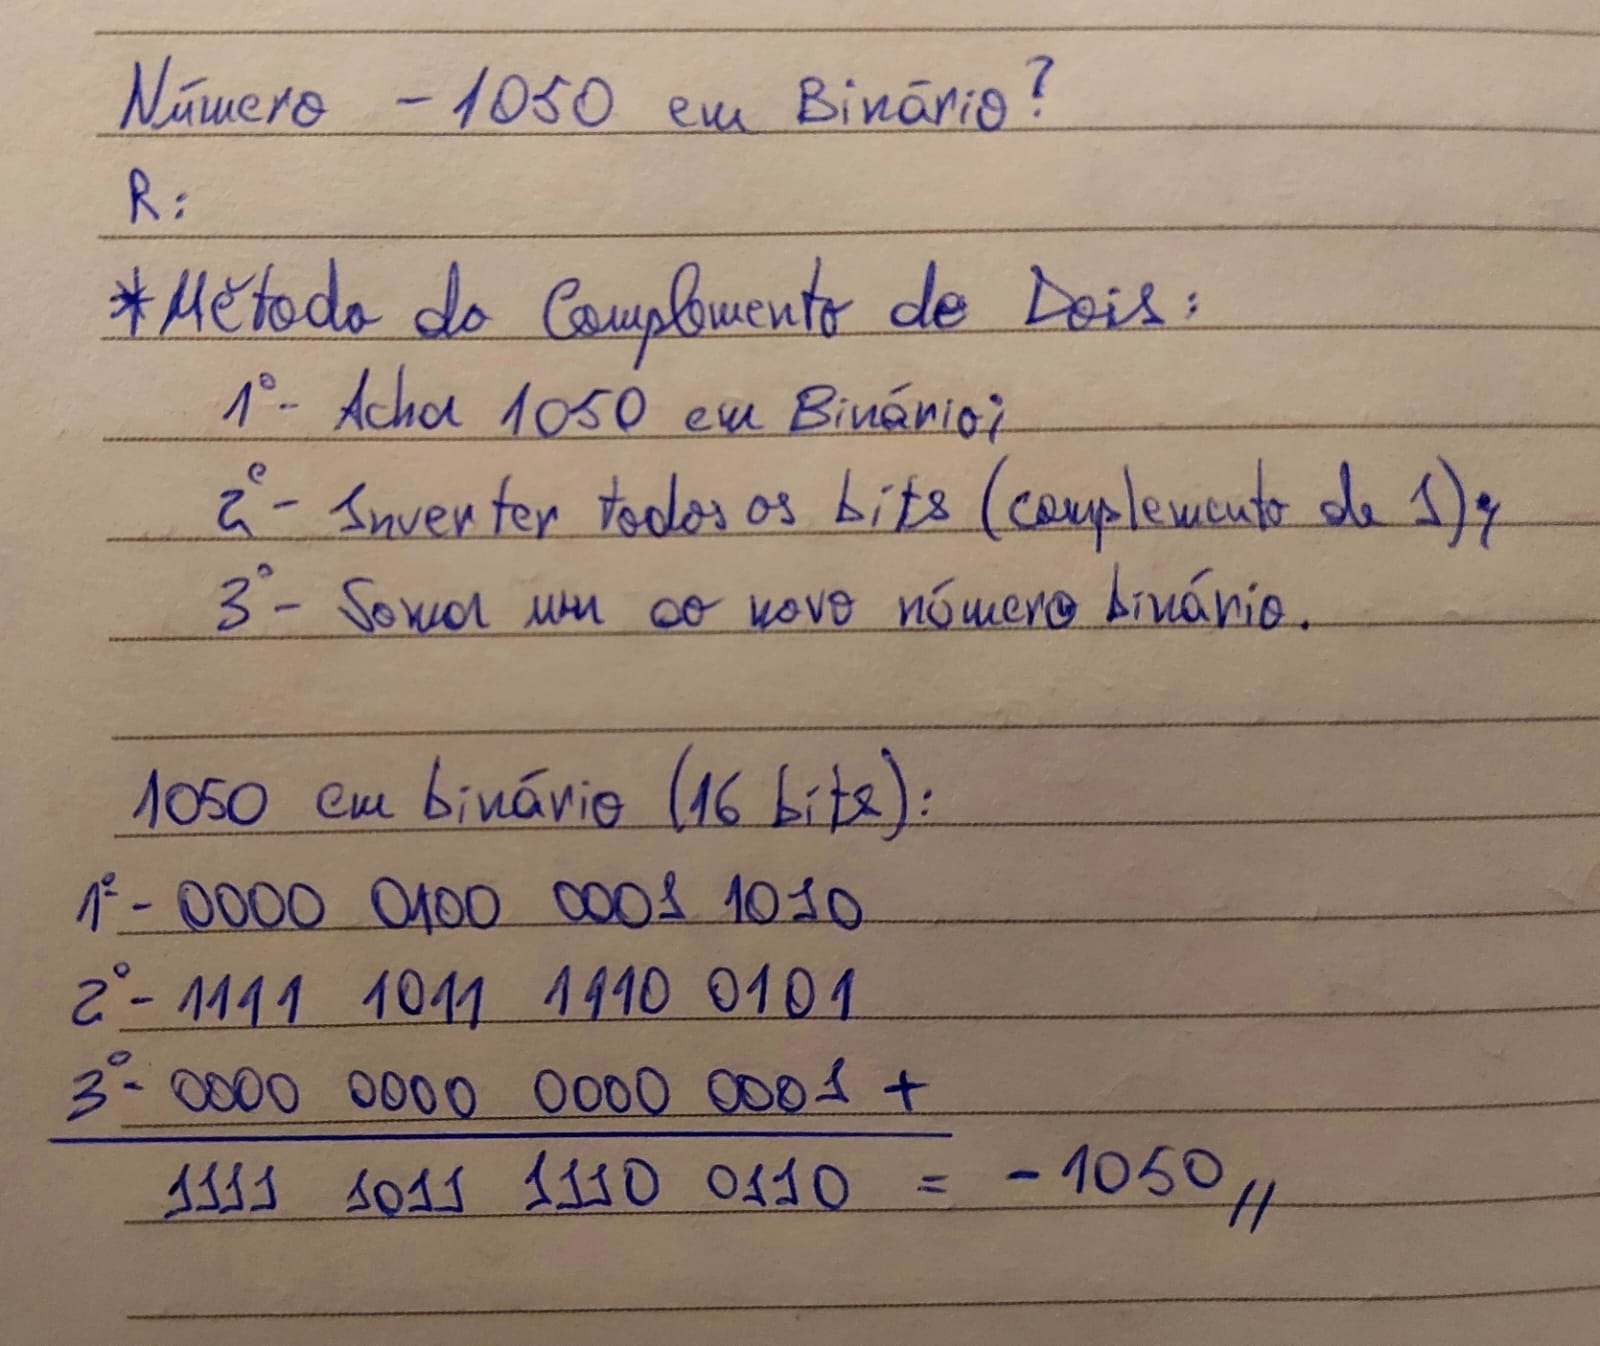 Número -1050 em Binário?
R:
*Método do Complemento de Dois:
1º- Acha 1050 em Binário;
2º- Inverter todos os bits (complemento de 1);
3º- Soma um ao novo número binário.
1050 em binário (16 bits):
1º- 0000 0100 0001 1010
2º- 1111 1011 1110 0101
3º- 0000 0000 0000 0001 +
1111 1011 1110 0110 = -1050,,